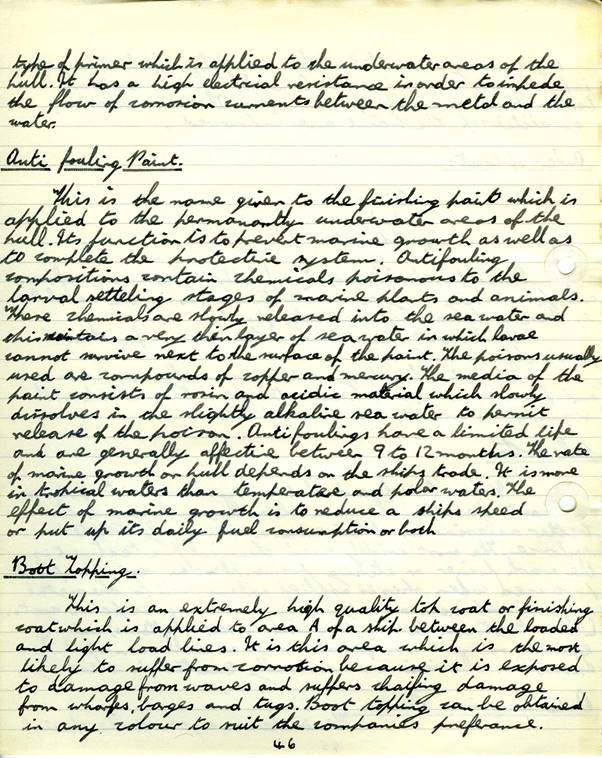 type of primer which is applied to the underwater areas of the
hull. It has a high electrical resistance in order to impede
the flow of corrosion currents between the metal and the
water.
Anti fouling Paint.
This is the name given to the finishing paint which is
applied to the permanantly underwater areas of the
hull. Its function is to prevent marine growth as well as
to complete the protective system. Antifouling
compositions contain chemicals poisonous to the
larval setteling stages of marine plants and animals.
These chemicals are slowly released into the sea water and
this maintains a very thin layer of sea water in which larvae
cannot survive next to the surface of the paint. The poisons usually
used are compounds of copper and mercury. The media of the
paint consists of rosin and acidic material which slowly
dissolves in the slightly alkaline sea water to permit
release of the poison. Antifoulings have a limited life
and are generally affective between 9 to 12 months. The rate
of marine growth on hull depends on the ships trade. It is more
in tropical waters than temperatae and polar waters. The
effect of marine growth is to reduce a ships speed
or put up its daily fuel consumption or both
Boot Topping.
This is an extremely high quality top coat or finishing
coat which is applied to area A of a ship between the loaded
and light load lines. It is this area which is the most
likely to suffer from corrotion because it is exposed
to damage from waves and suffers chaifing damage
from wharfes, barges and tugs. Boot topping can be obtained
in any colour to suit the companies preferance.
46